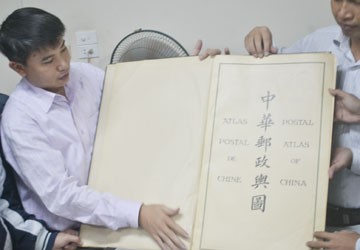 中華郵政輿圖
ATLAS
POSTAL
DE
CHINE
POSTAL
ATLAS
OF
CHINA